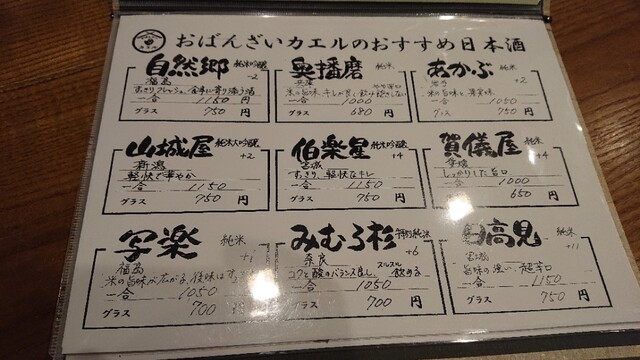 おばんざいカエルのおすすめ日本酒
自然郷 純米吟醸
福島 -2
すっきりフレッシュ、食事に寄り添う酒
一合 1150 円
グラス 750 円
奥播磨 純米
兵庫
米の旨味
一合 1000
グラス 680 円
あかぶ 純米
岩手 +2
米の旨味、果実味
一合 1050
グラス 750 円
山城屋 純米大吟醸
新潟 +2
軽快で華やか
一合 1150
グラス 750 円
伯楽星 純米吟醸
宮城 +4
すっきり、軽快なキレ
一合 1150
グラス 750 円
賀儀屋 純米
愛媛 +4
しっかりした旨口
一合 1000
グラス 650 円
写楽 純米
福島 +1
米の旨味が広がる、後味は
一合 1050
グラス 700
みむろ杉 特別純米
奈良 +6
コクと酸のバランス良し、スルスル飲める
一合 1050
グラス 700 円
日高見 純米
宮城 +11
旨味の強い、超辛口
一合 1150
グラス 750 円